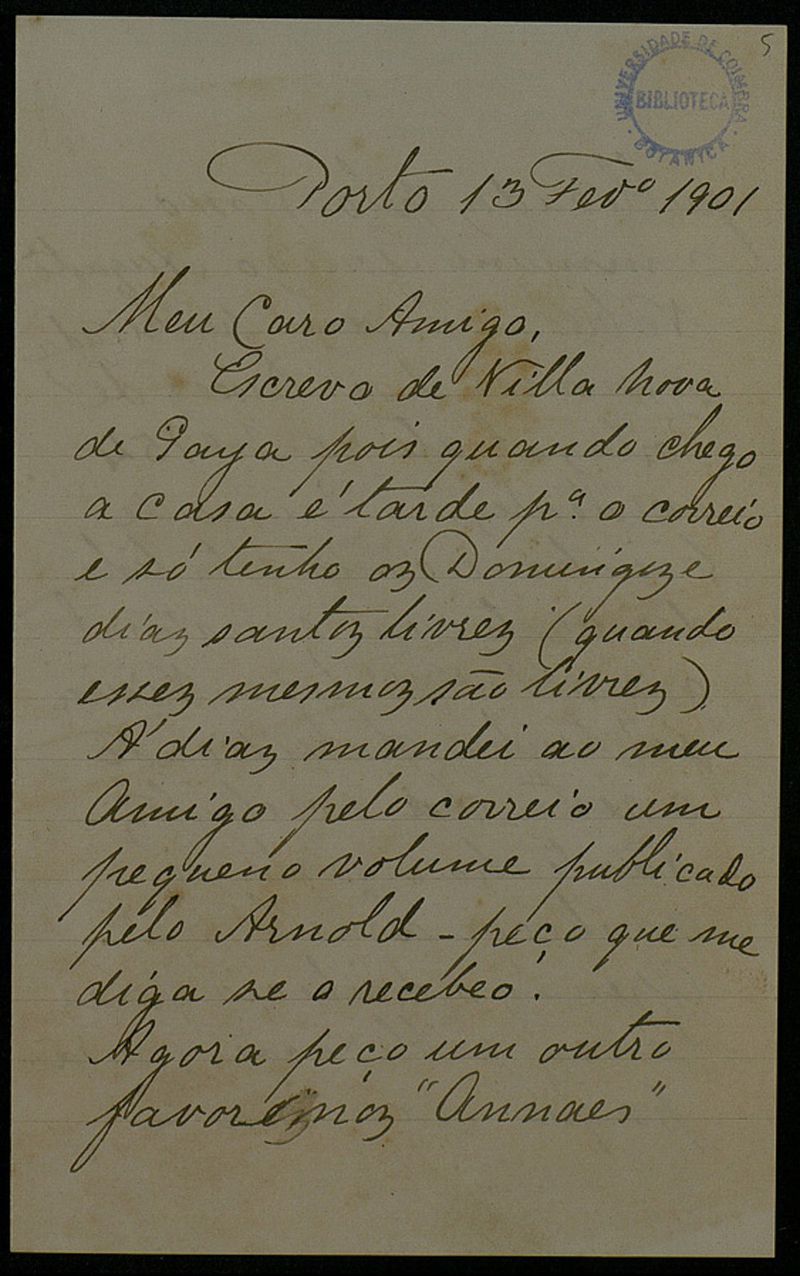 5
UNIVERSIDADE DE COIMBRA
BIBLIOTECA
BOTANICA
Porto 13 Fevº 1901
Meu Caro Amigo,
Escrevo de Villa Nova
de Gaya pois quando chego
a casa é tarde pª o correio
e só tenho os Domingos e
dias santos livres (quando
esses mesmos são livres)
Á dias mandei ao meu
Amigo pelo correio um
pequeno volume publicado
pelo Arnold - peço que me
diga se o recebeo.
Agora peço um outro
favor nos "Annaes"